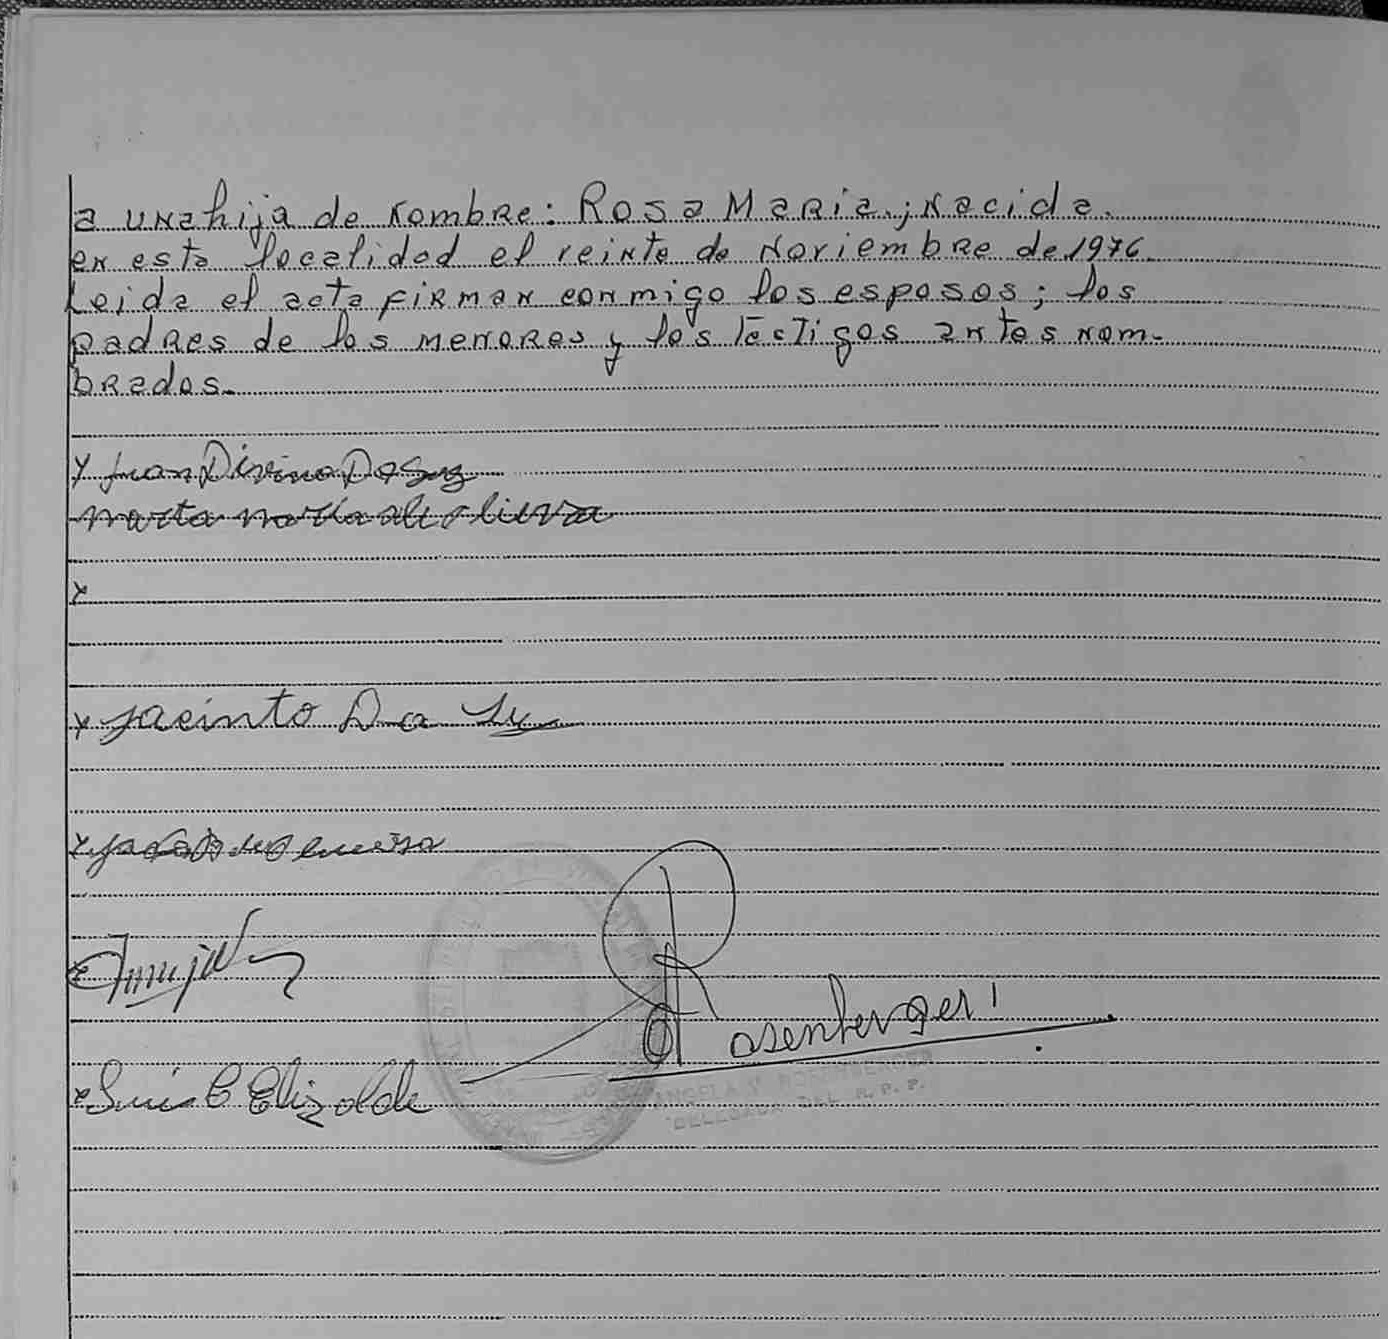 a una hija de nombre: Rosa Maria.; nacida
en esta localidad el veinte de Noviembre de 1976.
Leida el acta firman conmigo los esposos; los
padres de los menores y los testigos antes nom-
brados.-
x Juan Divino Da Luz
Marta María de Oliveira
x
x Jacinto Da Lu
x
x
Rosenberger
x Luis C Elizalde
ANGELA ROSENBERGER
DELEGADA DEL R. P. P.